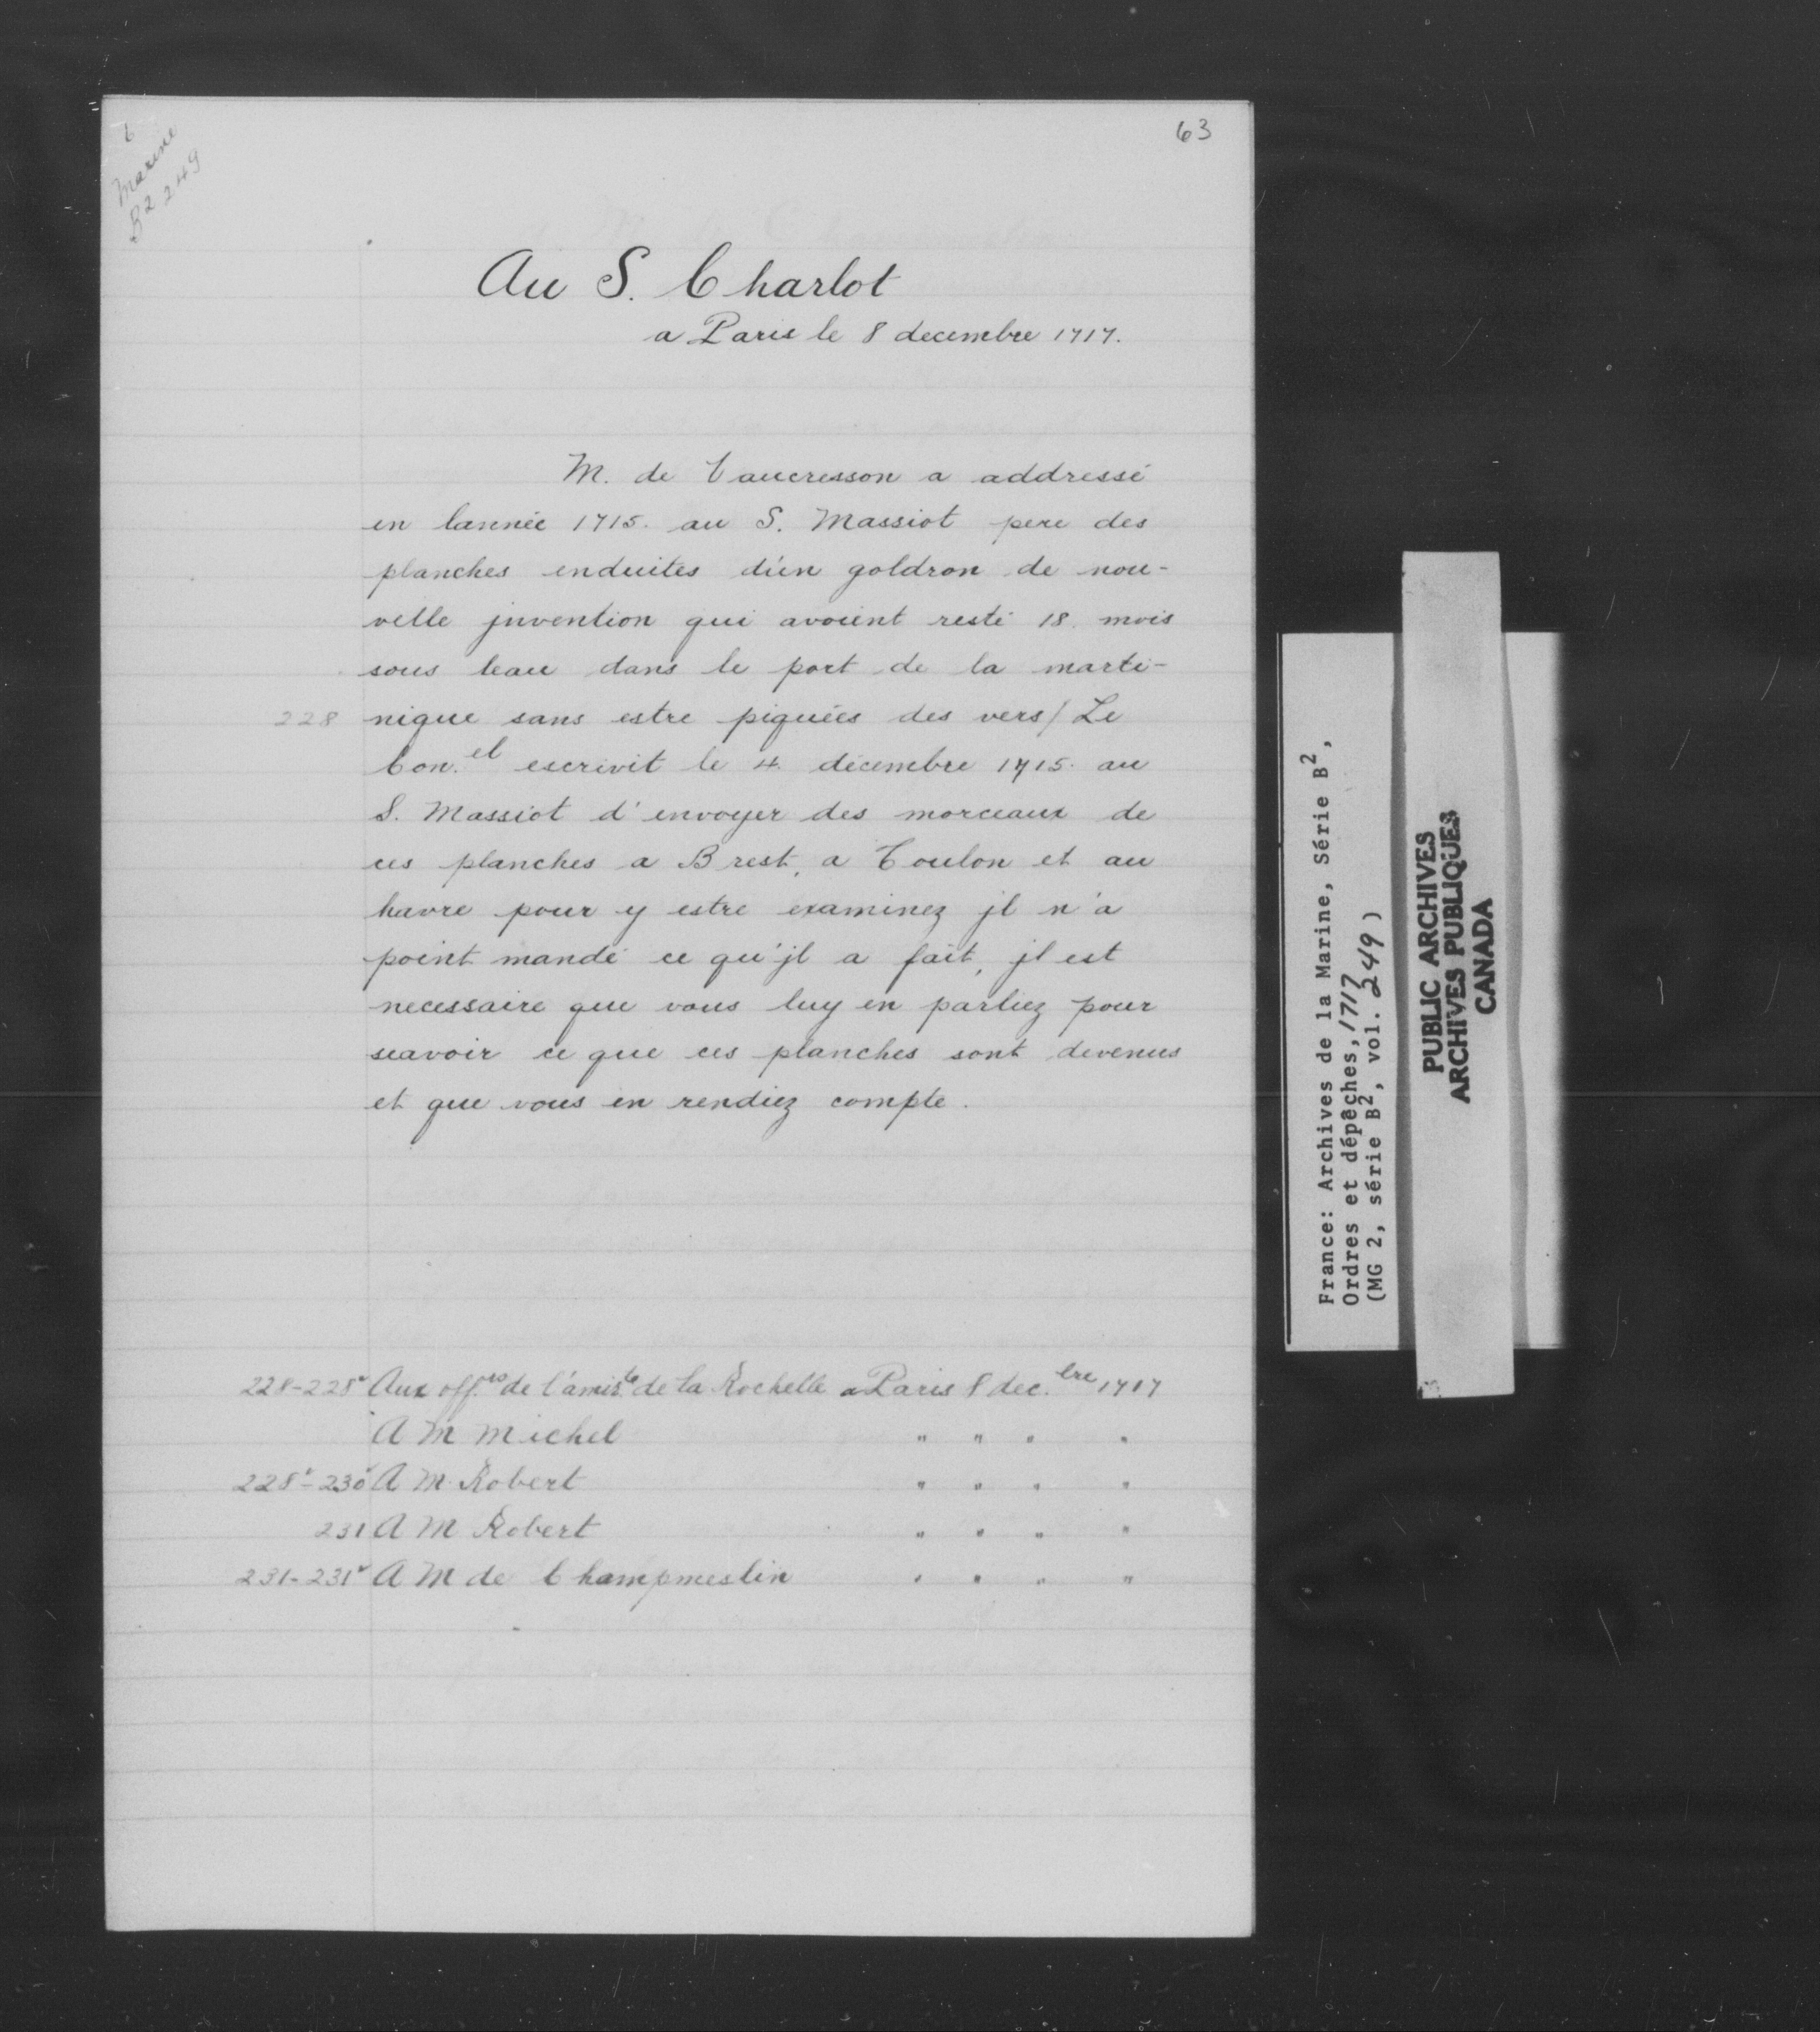 63
Marine
B2 249
Au S. Charlot
a Paris le 8 decembre 1717.
M. de Vaucresson a addressé
en lannée 1715. au S. Massiot pere des
planches enduites d'un goldron de nou-
velle jnvention qui avoient resté 18 mois
sous leau dans le port de la marti-
228 nique sans estre piquées des vers/ Le
Con.el escrivit le 4 décembre 1715. au
S. Massiot d'envoyer des morceaux de
ces planches a Brest, a Toulon et au
havre pour y estre examinez jl n'a
point mandé ce qu'jl a fait, jl est
necessaire que vous luy en parliez pour
scavoir ce que ces planches sont devenus
et que vous en rendiez compte.
228-228v Aux off.rs de l'amir.té de la Rochelle a Paris 8 dec.bre 1717
A M Michel " " " "
228v-230v A M. Robert " " " "
231 A M Robert " " " "
231-231v A M de Champmeslin " " " "
France: Archives de la Marine, Série B2,
Ordres et dépêches, 1717
(MG 2, série B2, vol. 249)
PUBLIC ARCHIVES
ARCHIVES PUBLIQUES
CANADA